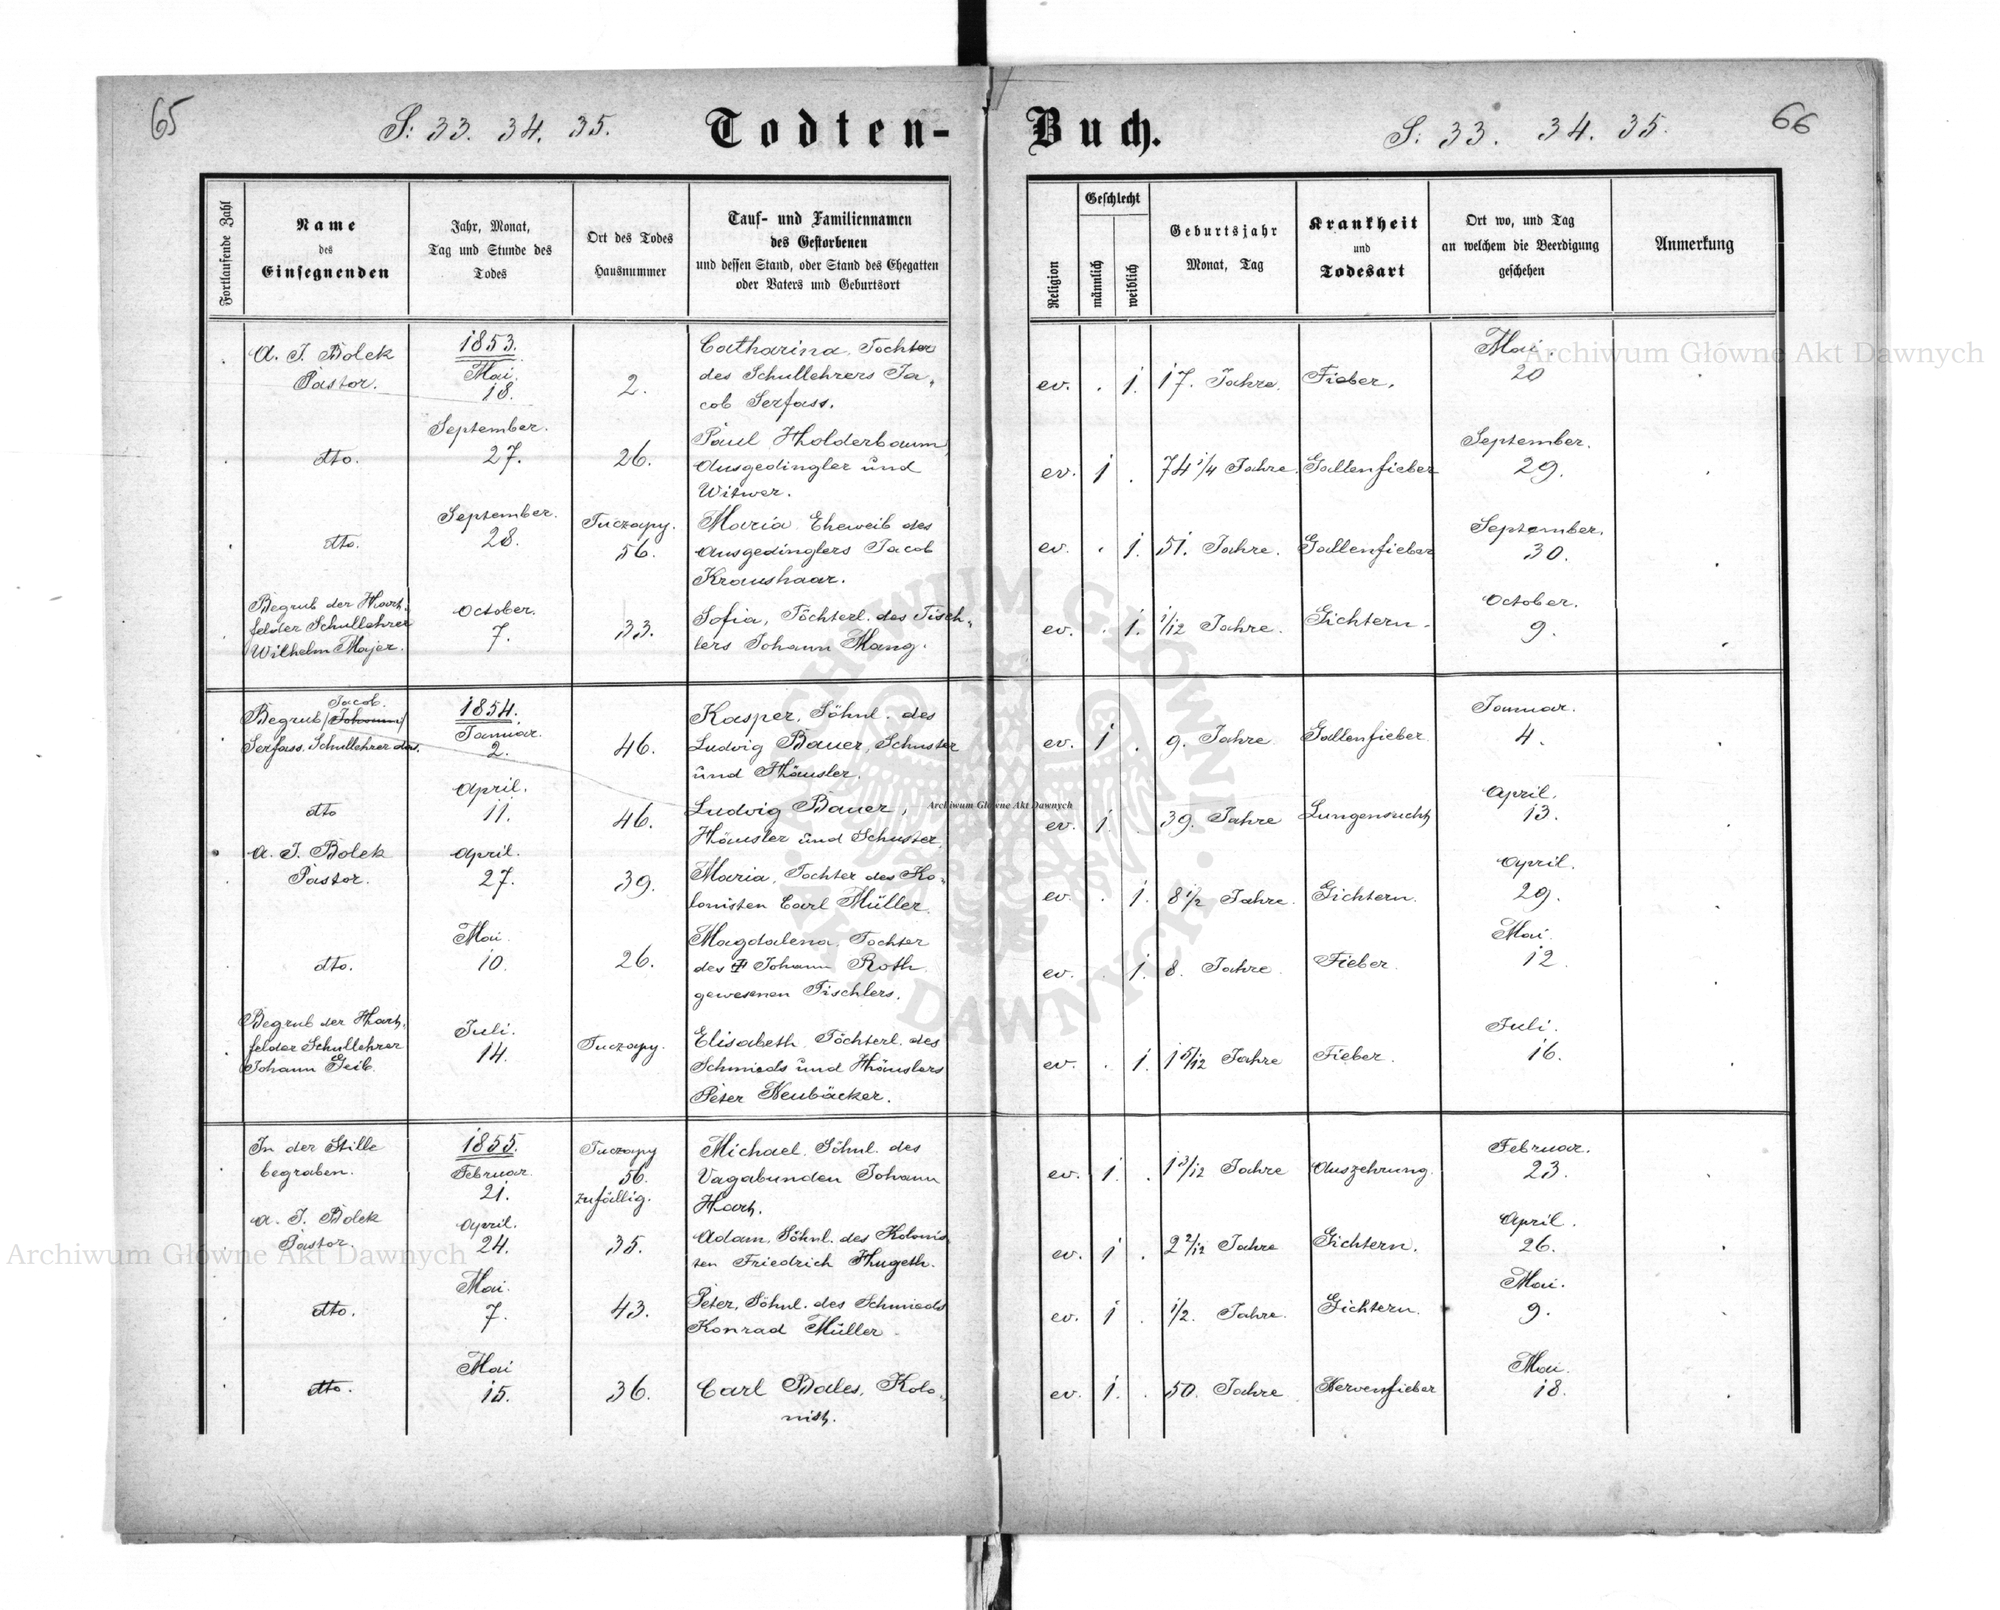 65
S: 33. 34. 35.
Todten-
Buch.
S: 33. 34. 35.
66
Fortlaufende Zahl
Name
des
Einsegnenden
Jahr, Monat,
Tag und Stunde des
Todes
Ort des Todes
Hausnummer
Tauf- und Familiennamen
des Gestorbenen
und dessen Stand, oder Stand des Ehegatten
oder Vaters und Geburtsort
Religion
Geschlecht
männlich
weiblich
Geburtsjahr
Monat, Tag
Krankheit
und
Todesart
Ort wo, und Tag
an welchem die Beerdigung
geschehen
Anmerkung
A. J. Bolek
Pastor.
1853.
Mai.
18.
2.
Catharina, Tochter
des Schullehrers Ja-
cob Serfass.
ev. . 1. 17. Jahre. Fieber.
Mai.
20
dto.
September.
27.
26.
Paul Holderbaum,
Ausgedingler und
Witwer.
ev. 1 . 74 1/4 Jahre. Gallenfieber
September.
29.
dto.
September.
28.
Tuczapy.
56.
Maria, Eheweib des
Ausgedinglers Jacob
Kraushaar.
ev. . 1. 51. Jahre. Gallenfieber
September.
30.
Begrub der Hart-
felder Schullehrer
Wilhelm Majer.
October.
7.
33.
Sofia, Töchterl. des Tisch-
lers Johann Mang.
ev. . 1. 1/12 Jahre. Gichtern.
October.
9.
Jacob.
Begrub /Johann/
Serfass. Schullehrer das.
1854.
Januar.
2.
46.
Kasper, Söhnl. des
Ludwig Bauer, Schuster
und Häusler.
ev. 1 . 9. Jahre. Gallenfieber.
Januar.
4.
dto
April.
11.
46.
Ludwig Bauer,
Häusler und Schuster.
ev. 1. . 39. Jahre Lungensucht
April.
13.
A. J. Bolek
Pastor.
April.
27.
39.
Maria, Tochter des Ko-
lonisten Carl Müller.
ev. . 1. 8 1/2 Jahre. Gichtern.
April.
29.
dto.
Mai.
10.
26.
Magdalena, Tochter
des Johann Roth
gewesenen Tischlers.
ev. . 1. 8. Jahre. Fieber.
Mai.
12.
Begrub der Hart-
felder Schullehrer
Johann Geib.
Juli.
14.
Tuczapy.
Elisabeth, Töchterl. des
Schmieds und Häuslers
Peter Neubäcker.
ev. . 1. 1 5/12 Jahre Fieber.
Juli.
16.
In der Stille
begraben.
1855.
Februar.
21.
Tuczapy
56.
zufällig.
Michael, Söhnl. des
Vagabunden Johann
Hart.
ev. 1. . 1 3/12 Jahre Auszehrung.
Februar.
23.
A. J. Bolek
Pastor.
April.
24.
35.
Adam, Söhnl. des Kolonis-
ten Friedrich Hugeth.
ev. 1 . 2 2/12 Jahre Gichtern.
April.
26.
dto.
Mai.
7.
43.
Peter, Söhnl. des Schmieds
Konrad Müller.
ev. 1 . 1/2. Jahre. Gichtern.
Mai.
9.
dto.
Mai
15.
36.
Carl Bales, Kolo-
nist.
ev. 1. . 50. Jahre. Nervenfieber
Mai.
18.
Archiwum Główne Akt Dawnych
Archiwum Główne Akt Dawnych
Archiwum Główne Akt Dawnych
ARCHIWUM GŁÓWNE AKT DAWNYCH